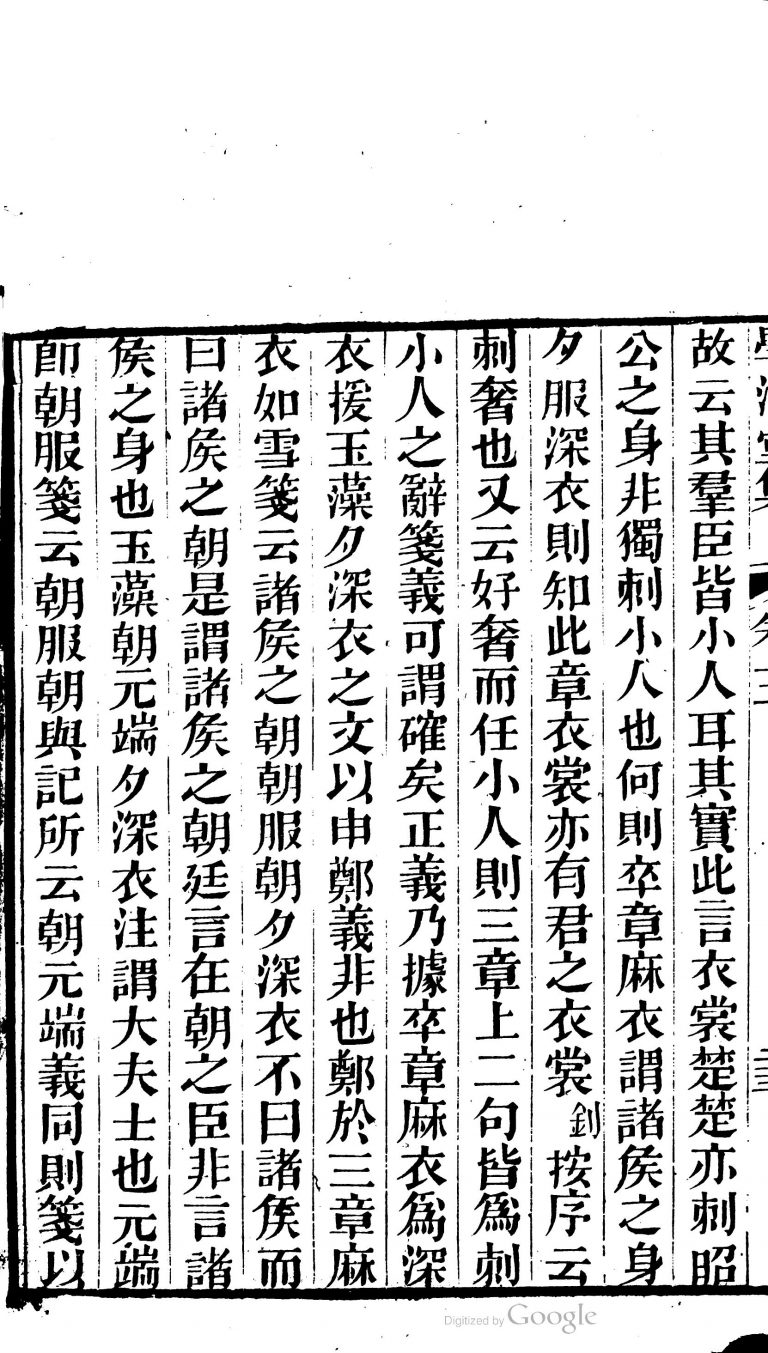 故云其羣臣皆小人耳其實此言衣裳楚楚亦刺昭
公之身非獨刺小人也何則卒章麻衣謂諸矦之身
夕服深衣則知此章衣裳亦有君之衣裳釗按序云
刺奢也又云好奢而任小人則三章上二句皆爲刺
小人之辭箋義可謂確矣正義乃據卒章麻衣爲深
衣援玉藻夕深衣之文以申鄭義非也鄭於三章麻
衣如雪箋云諸矦之朝朝服朝夕深衣不曰諸矦而
曰諸矦之朝是謂諸矦之朝廷言在朝之臣非言諸
矦之身也玉藻朝元端夕深衣注謂大夫士也元端
卽朝服箋云朝服朝與記所云朝元端義同則箋以
Digitized by Google